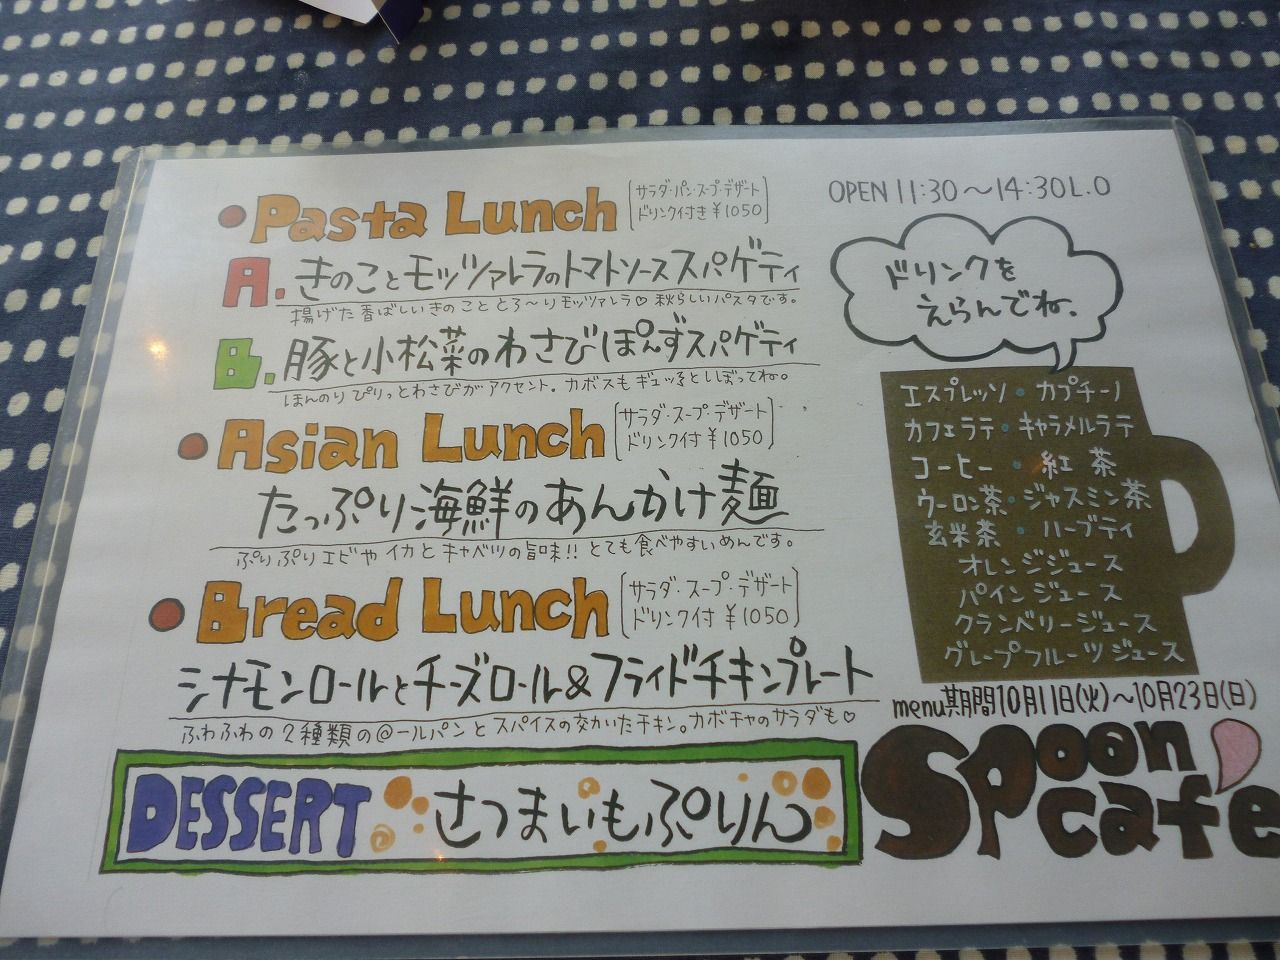 Pasta Lunch
サラダ・パン・スープ・デザート
ドリンク付き ¥1050
A. きのことモッツァレラのトマトソーススパゲティ
揚げた香ばしいきのこととろ〜りモッツァレラ♡秋らしいパスタです。
B. 豚と小松菜のわさびぽんずスパゲティ
ほんのりぴりっとわさびがアクセント。カボスもギュッとしぼってね。
Asian Lunch
サラダ・スープ・デザート
ドリンク付 ¥1050
たっぷり海鮮のあんかけ麺
ぷりぷりエビやイカとキャベツの旨味!! とても食べやすいめんです。
Bread Lunch
サラダ・スープ・デザート
ドリンク付 ¥1050
シナモンロールとチーズロール&フライドチキンプレート
ふわふわの2種類の@ールパンとスパイスの効いたチキン。カボチャのサラダも♡
DESSERT さつまいもぷりん
OPEN 11:30〜14:30 L.O
ドリンクを
えらんでね、
エスプレッソ・カプチーノ
カフェラテ・キャラメルラテ
コーヒー・紅茶
ウーロン茶・ジャスミン茶
玄米茶・ハーブティ
オレンジジュース
パインジュース
クランベリージュース
グレープフルーツジュース
menu期間10月11日(火)〜10月23日(日)
Spoon
cafe